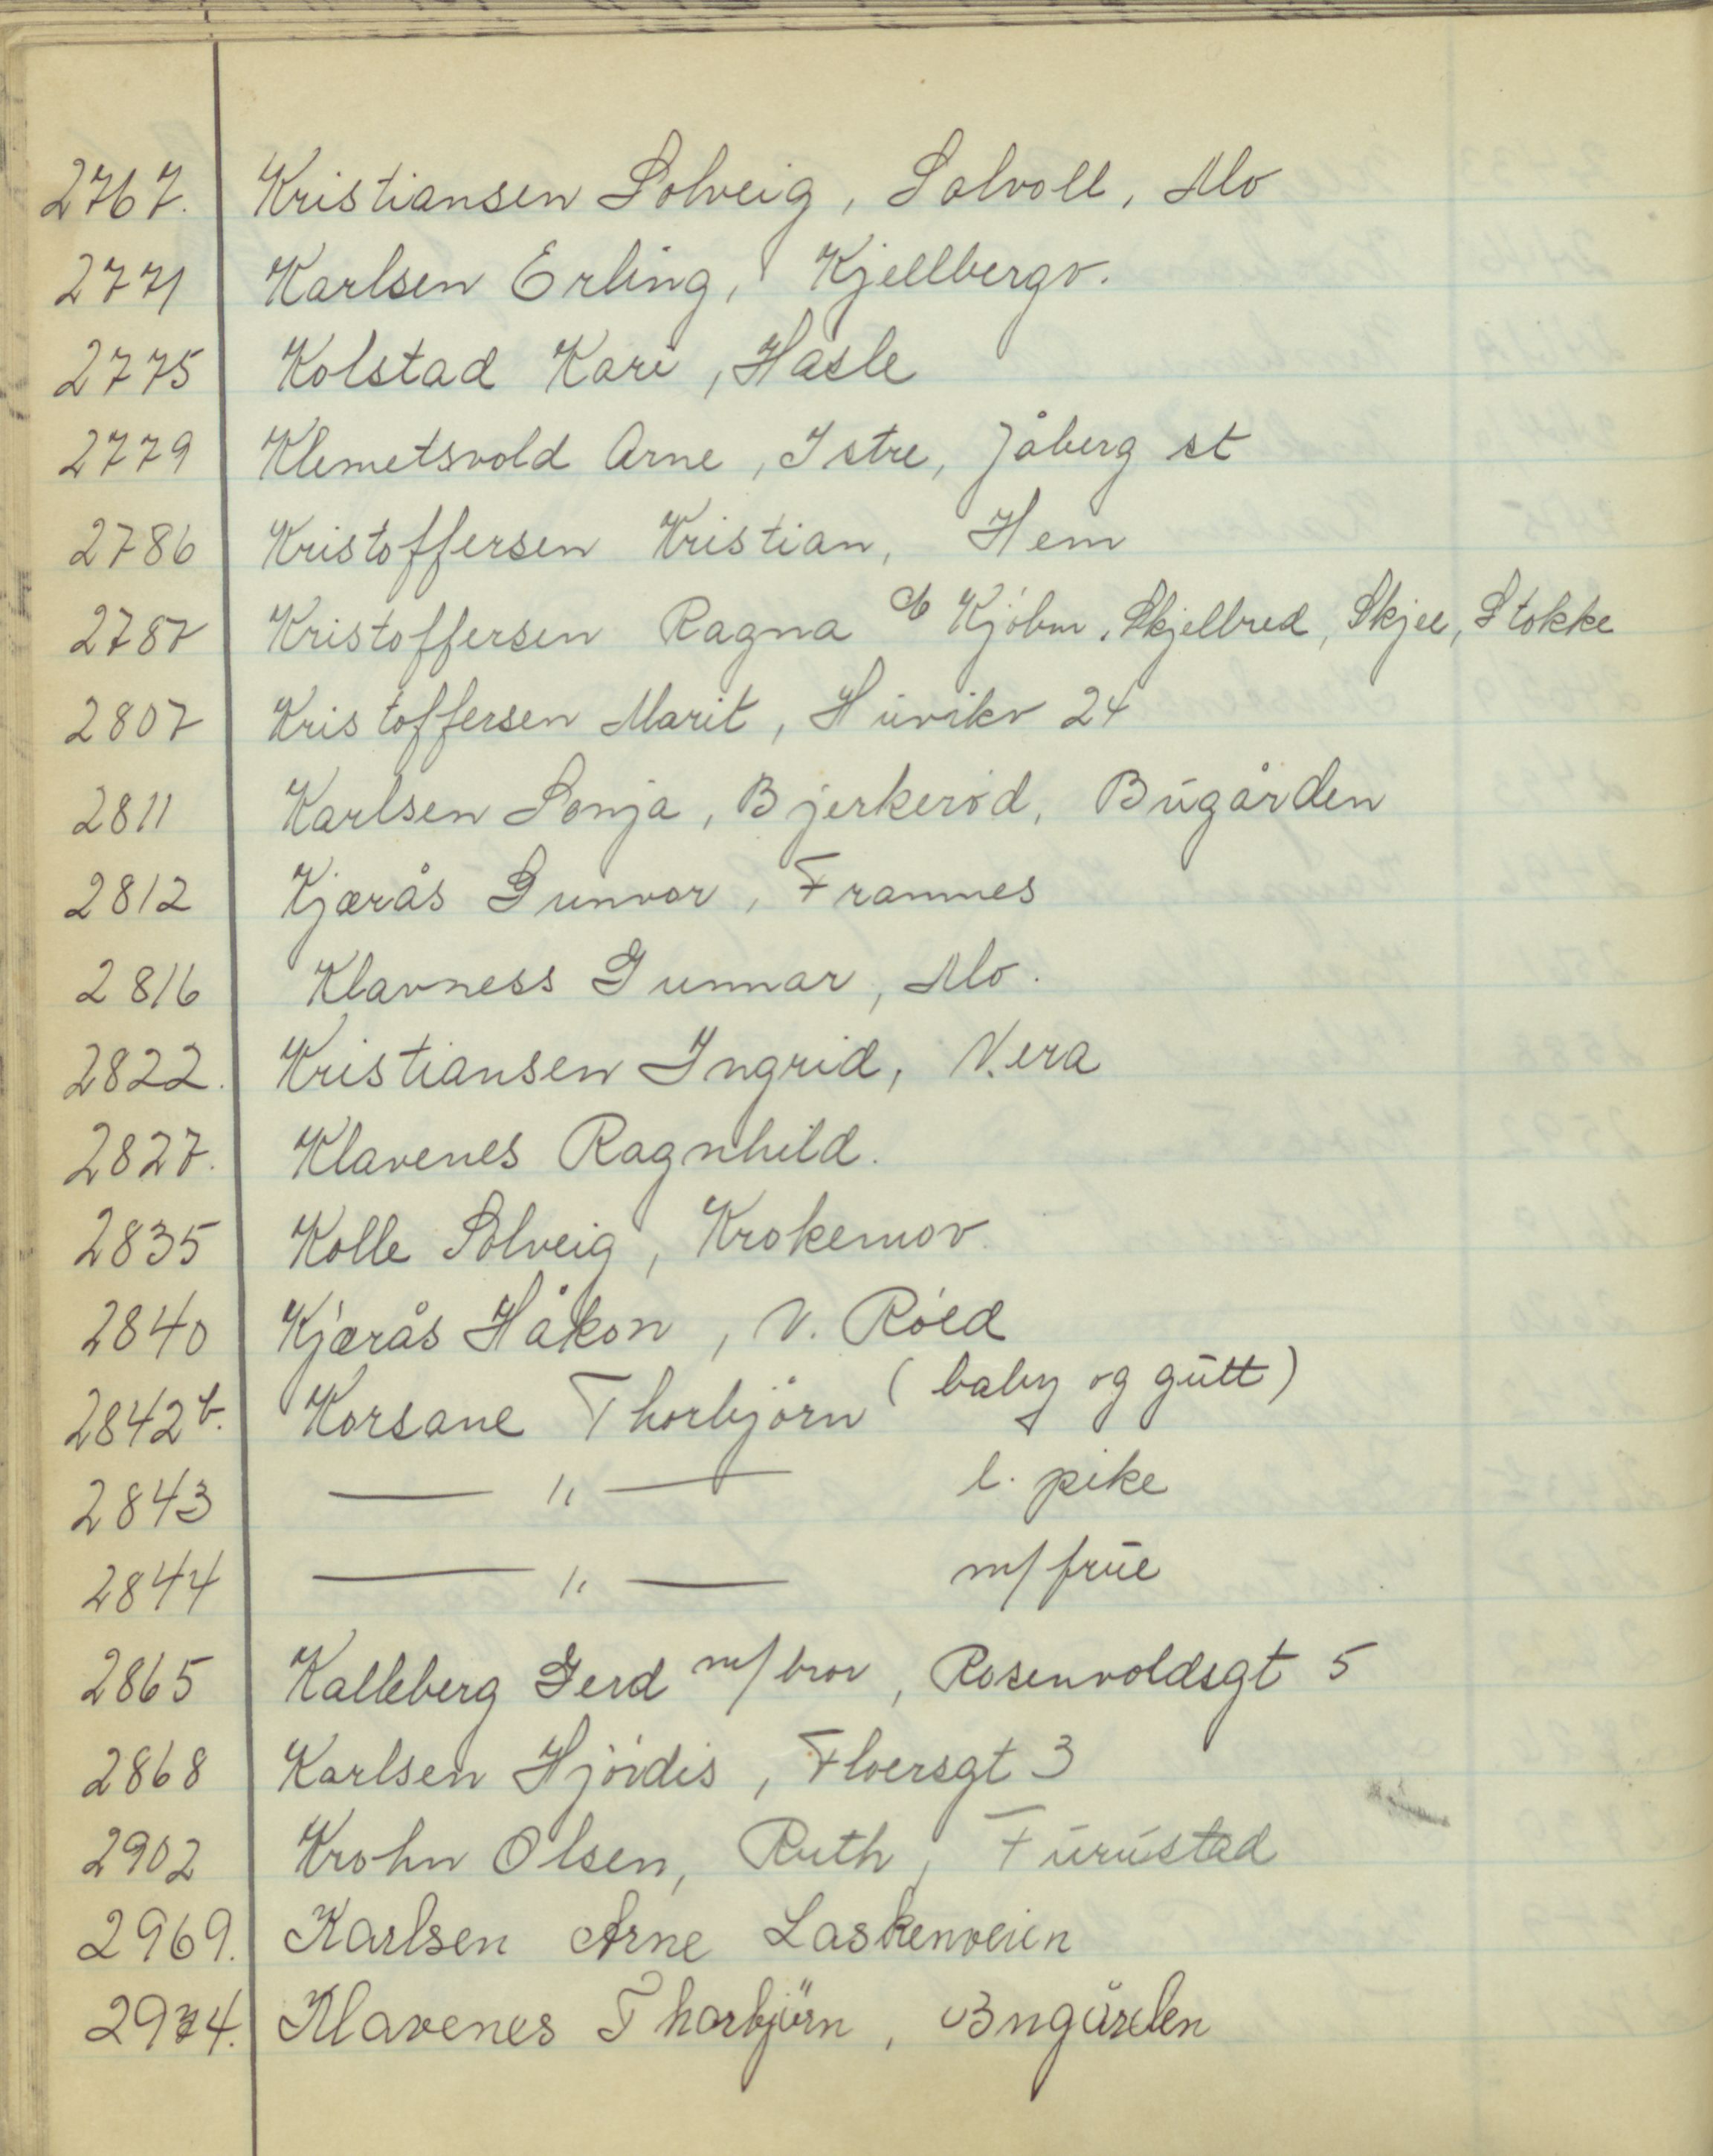 2767. Kristiansen Solveig, Solvoll, Mo
2771 Karlsen Erling, Kjellbergv.
2775 Kolstad Kari, Hasle
2779 Klemetsvold Arne, Istre, Jåberg st
2786 Kristoffersen Kristian, Hem
2787 Kristoffersen Ragna c/o Kjóbm. Skjellbred, Skjee, Stokke
2807 Kristoffersen Marit, Huvikv 24
2811 Karlsen Sonja, Bjerkeród, Bugården
2812 Kjærås Gunvor, Framnes
2816 Klavness Gunnar, Mo.
2822. Kristiansen Ingrid, Vera
2827. Klavenes Ragnhild.
2835 Kolle Solveig, Krokemov.
2840 Kjærås Håkon, V. Róed
2842 b. Korsane Thorbjórn (baby og gutt)
2843 — " — l. pike
2844 — " — m/ frue
2865 Kalleberg Gerd m/ bror, Rosenvoldsgt 5
2868 Karlsen Hjórdis, Floersgt 3
2902 Krohn Olsen, Ruth, Furustad
2969. Karlsen Arne Laskenveien
2974. Klavenes Thorbjörn, Bugården